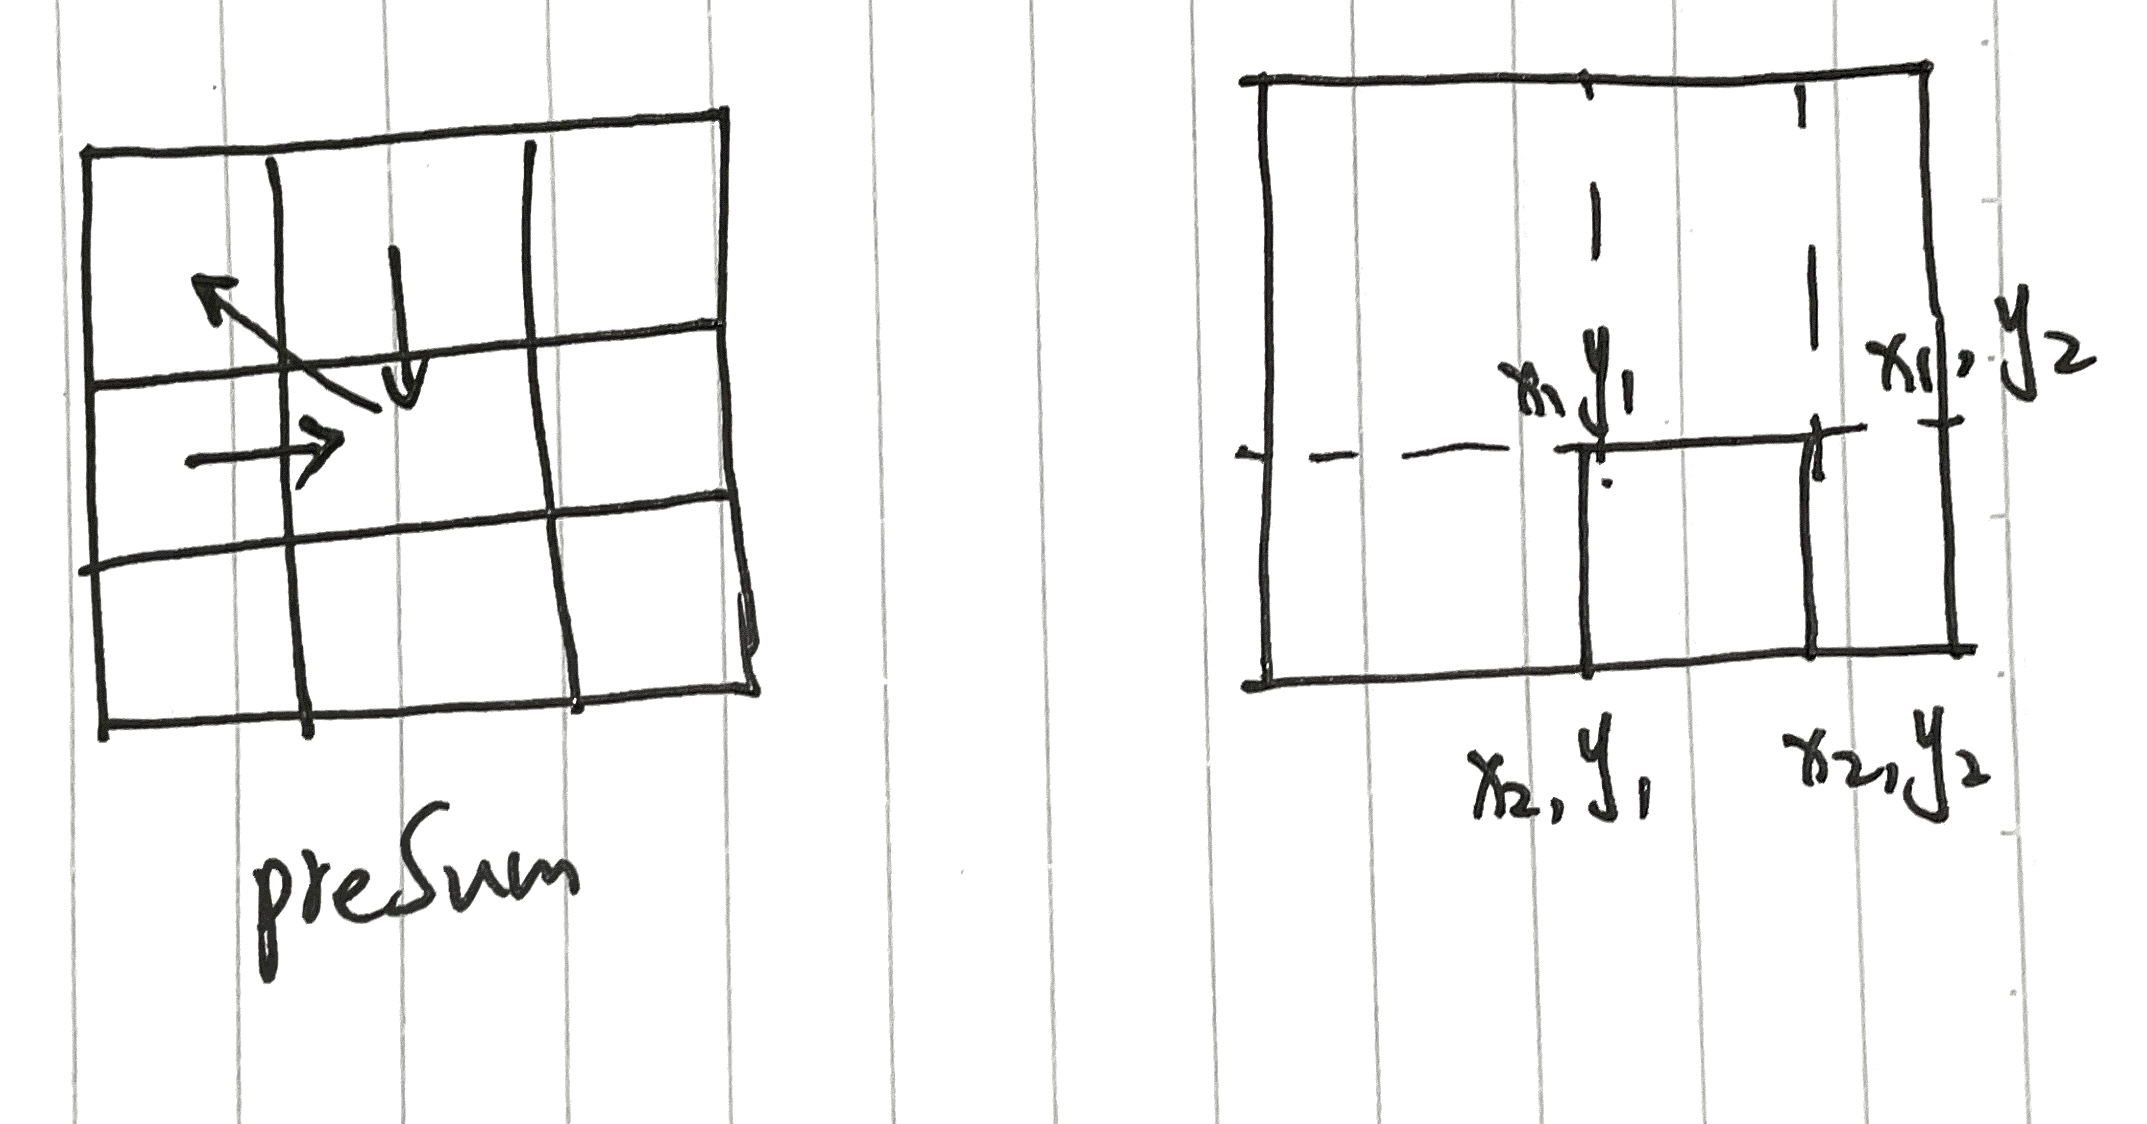 preSum
x1, y1
x1, y2
x2, y1
x2, y2